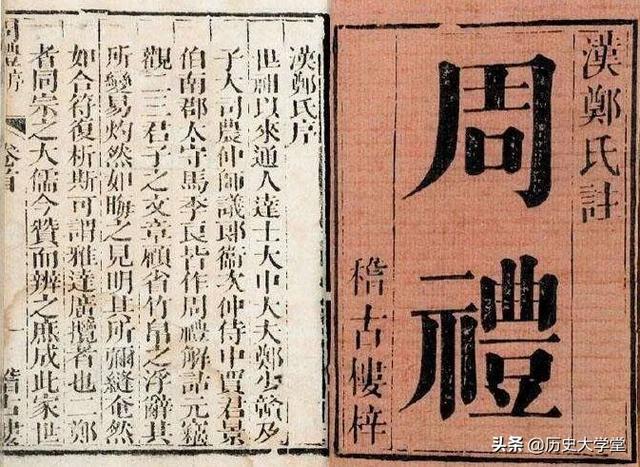 漢鄭氏註
周禮
稽古樓梓
漢鄭氏序
世祖以來通人達士大中大夫鄭少贛及
子大司農仲師議郎衛次仲侍中賈君景
伯南郡太守馬季長皆作周禮解詁元竊
觀二三君子之文章顧省竹帛之浮辭其
所變易灼然如晦之見明其所彌縫奄然
如合符復析斯可謂雅達廣攬者也二鄭
者同宗之大儒今贊而辨之庶成此家世
周禮序 卷首 稽古樓
头条 @历史大学堂